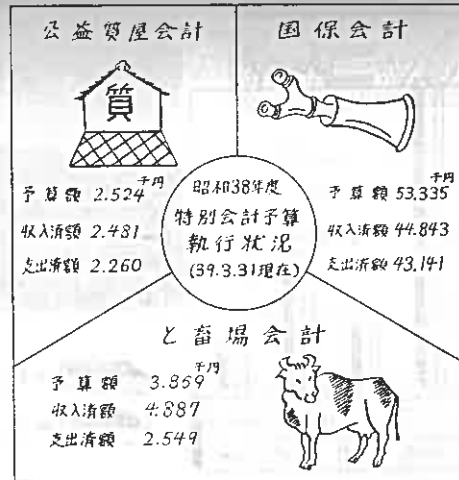 公益質屋会計
質
千円
予算額 2.524
収入済額 2.481
支出済額 2.260
国保会計
千円
予算額 53.335
収入済額 44.843
支出済額 43.141
昭和38年度
特別会計予算
執行状況
(39.3.31現在)
と畜場会計
千円
予算額 3.859
収入済額 4.887
支出済額 2.549